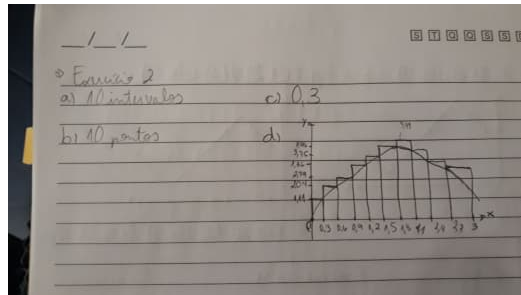 __/__/__
S T Q Q S S
Exercício 2
a) 10 intervalos
c) 0,3
b) 10 pontos
d)
y
2,04
1,11
0,3 0,6 0,9 1,2 1,5 1,8 2,1 2,4 2,7 3 x